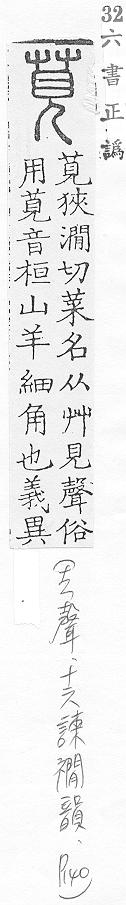 32 六書正譌
莧
莧狹澗切菜名从艸見聲俗
用萈音桓山羊細角也義異
(去聲、十六諫襉韻、P140)